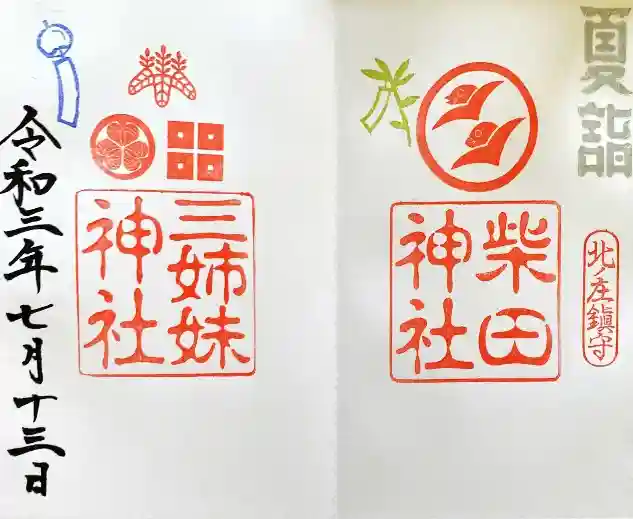 夏詣
北ノ庄鎮守
柴田
神社
三姉妹
神社
令和三年七月十三日